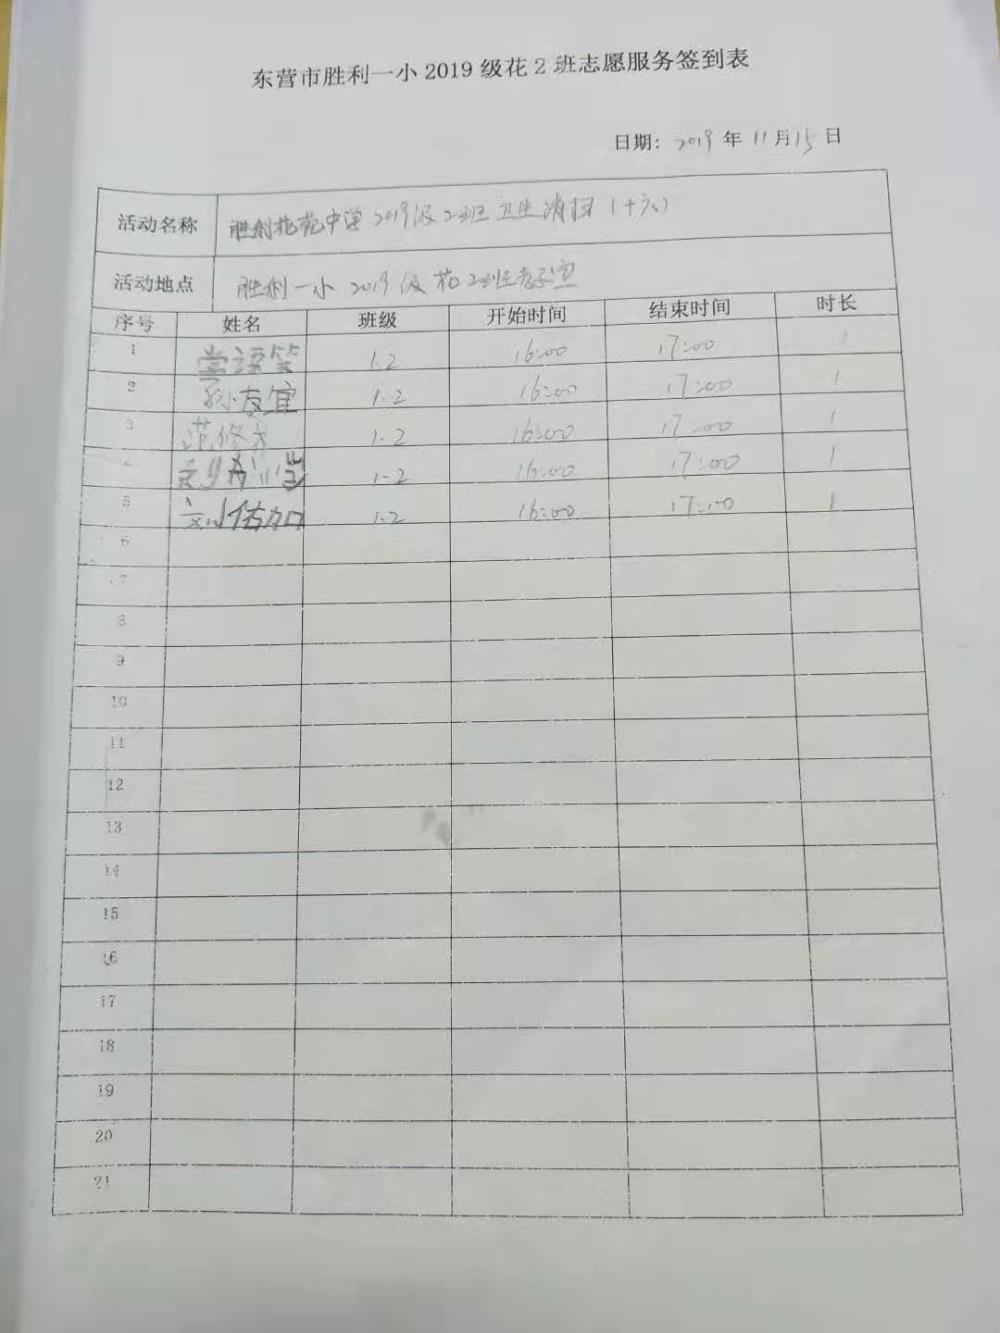 东营市胜利一小2019级花2班志愿服务签到表
日期：2019年11月15日
活动名称 胜利花苑中学2019级2班卫生清扫（十六）
活动地点 胜利一小2019级花2班教室
序号 姓名 班级 开始时间 结束时间 时长
1 常语笑 1.2 16:00 17:00 1
2 孙友宜 1.2 16:00 17:00 1
3 范修 1-2 16:00 17:00 1
1-2 16:00 17:00 1
5 刘估加 1.2 16:00 17:00 1
6
7
8
9
10
11
12
13
14
15
16
17
18
19
20
21